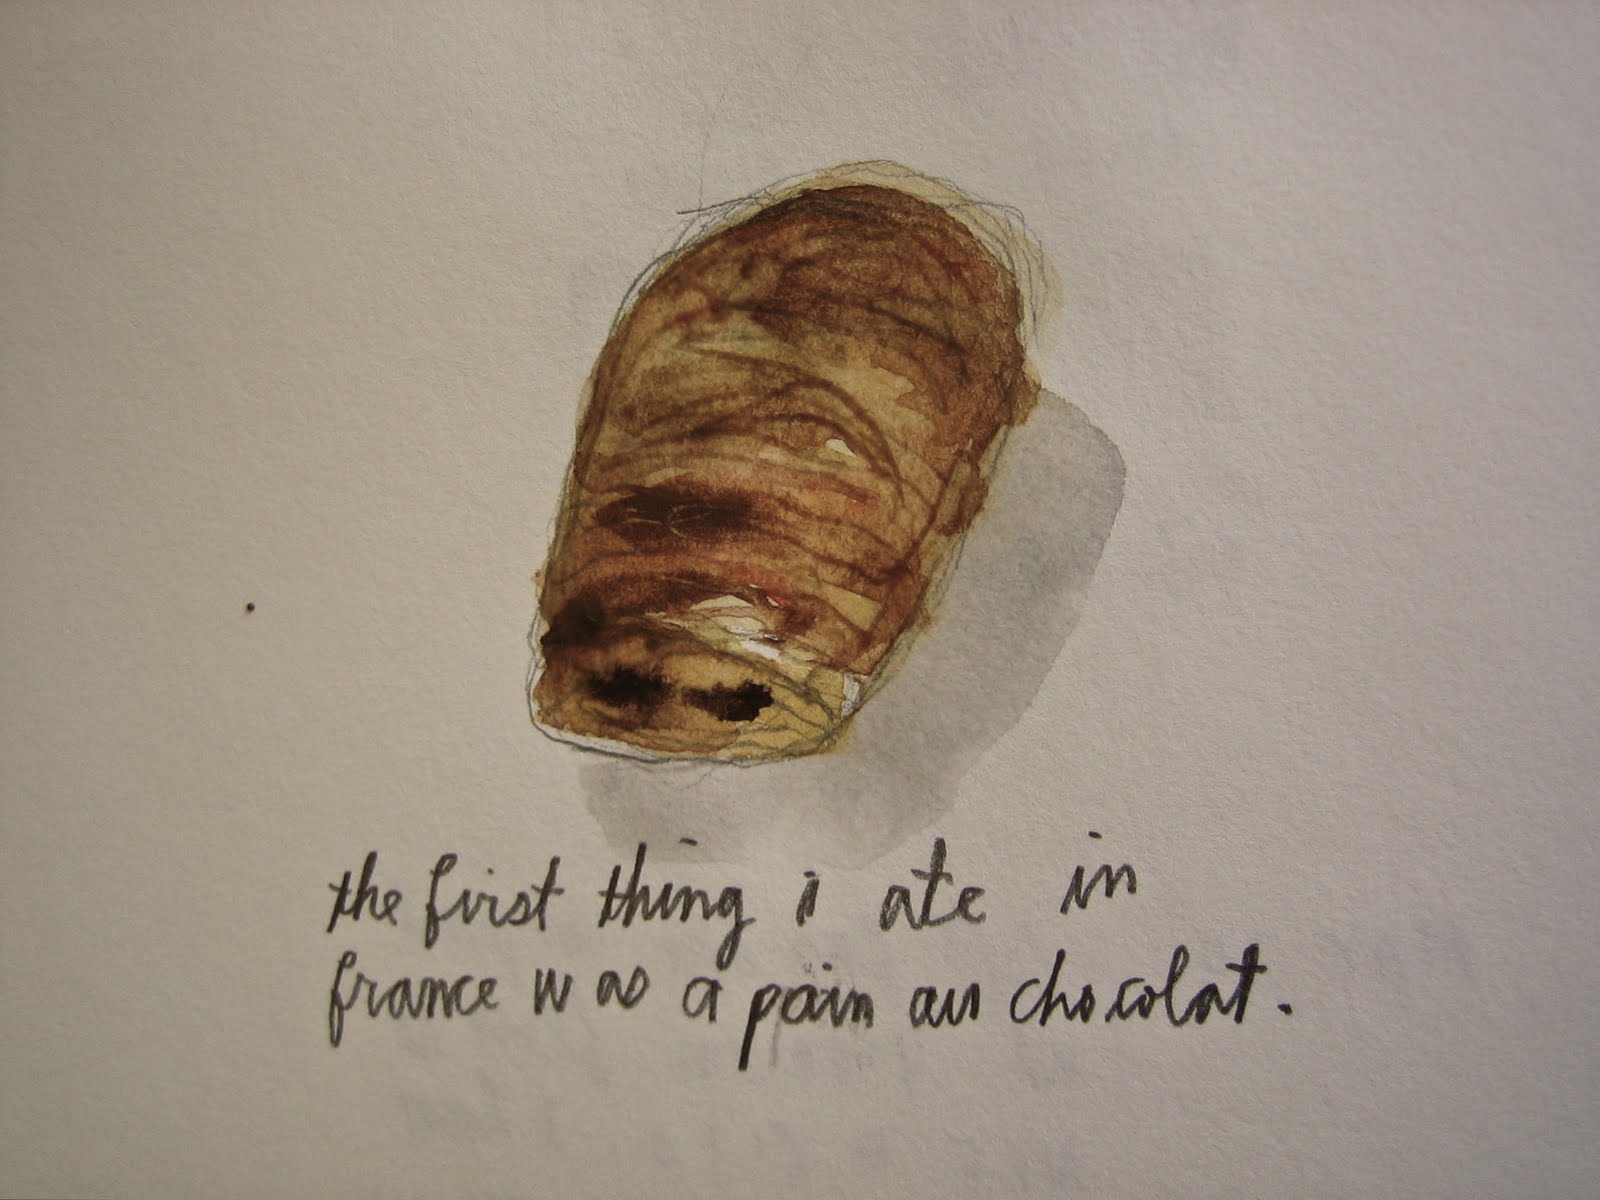 the first thing i ate in
france was a pain au chocolat.